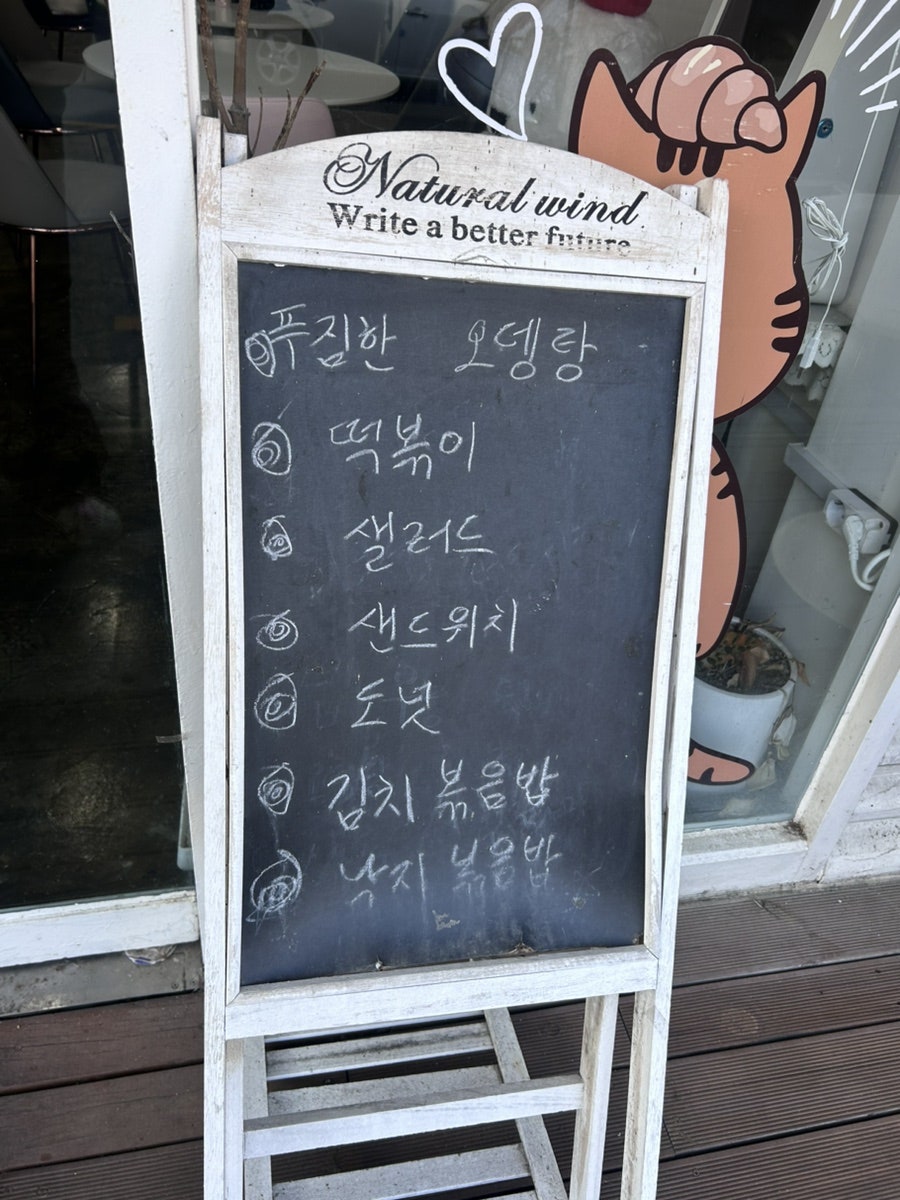 Natural wind
Write a better future
푸짐한 오뎅탕
떡볶이
샐러드
샌드위치
도넛
김치 볶음밥
낙지 볶음밥